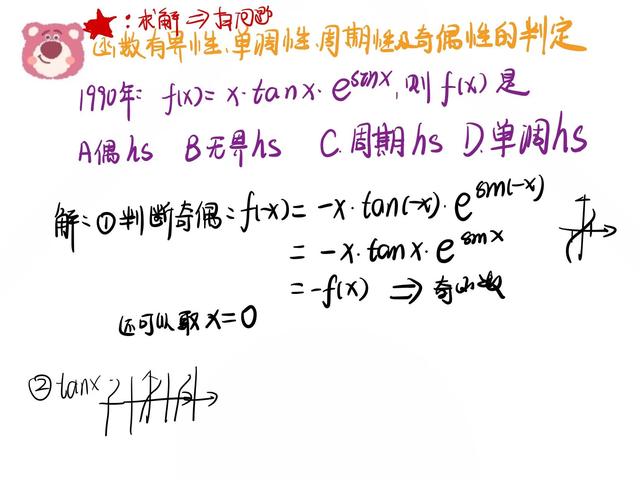 ★:求解⇒有问题
函数有界性、单调性、周期性及奇偶性的判定
1990年: f(x)=x·tanx·e^sinx,则f(x)是
A偶hs B无界hs C.周期hs D.单调hs
解:①判断奇偶:f(-x)=-x·tan(-x)·e^sin(-x)
=-x·tanx·e^sinx
=-f(x) ⇒ 奇函数
还可以取x=0
②tanx